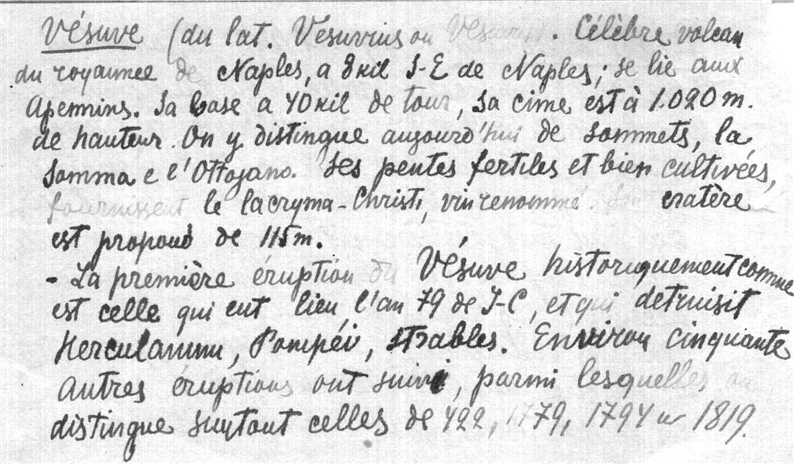 Vésuve (du lat. Vesuvius ou). Célèbre volcan
du royaumee de Naples, a 8 kil S-E de Naples; se lie aux
Apennins. Sa base a 40 kil de tour, sa cime est à 1.020 m.
de hauteur. On y distingue aujourd'hui de sommets, la
Somma e l'Ottajano. Ses pentes fertiles et bien cultivées,
fournissent le lacryma-Christi, vin renommé. Son cratère
est propond de 115m.
- La première éruption du Vésuve historiquement connue
est celle qui eut lieu l'an 79 de J-C, et qui detruisit
Herculanum, Pompéi, Strables. Environ cinquante
autres éruptions ont suivi, parmi lesquelles on
distingue surtout celles de 422, 1779, 1794 et 1819.